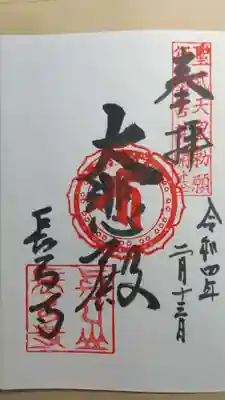 聖武天皇勅願
奉拝
令和四年
二月十三日
大悲殿
長弓寺